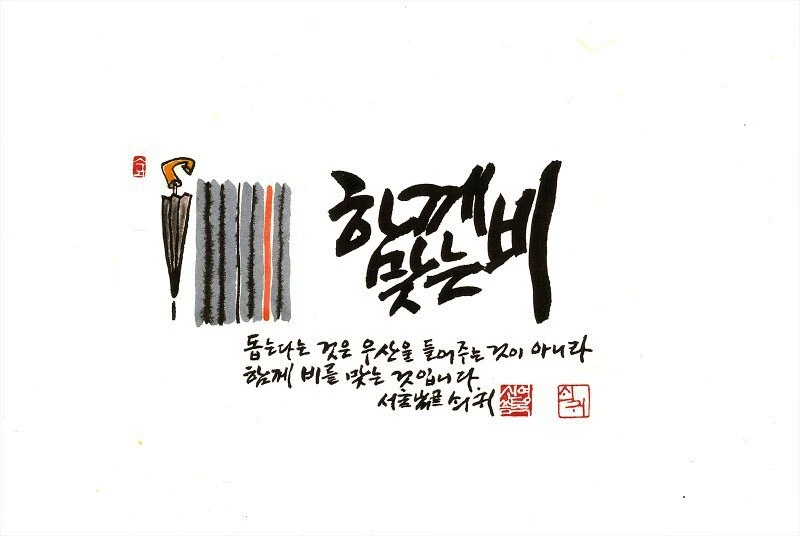 함께
맞는 비
돕는다는 것은 우산을 들어주는 것이 아니라
함께 비를 맞는 것입니다.
쇠귀
신영복
쇠귀